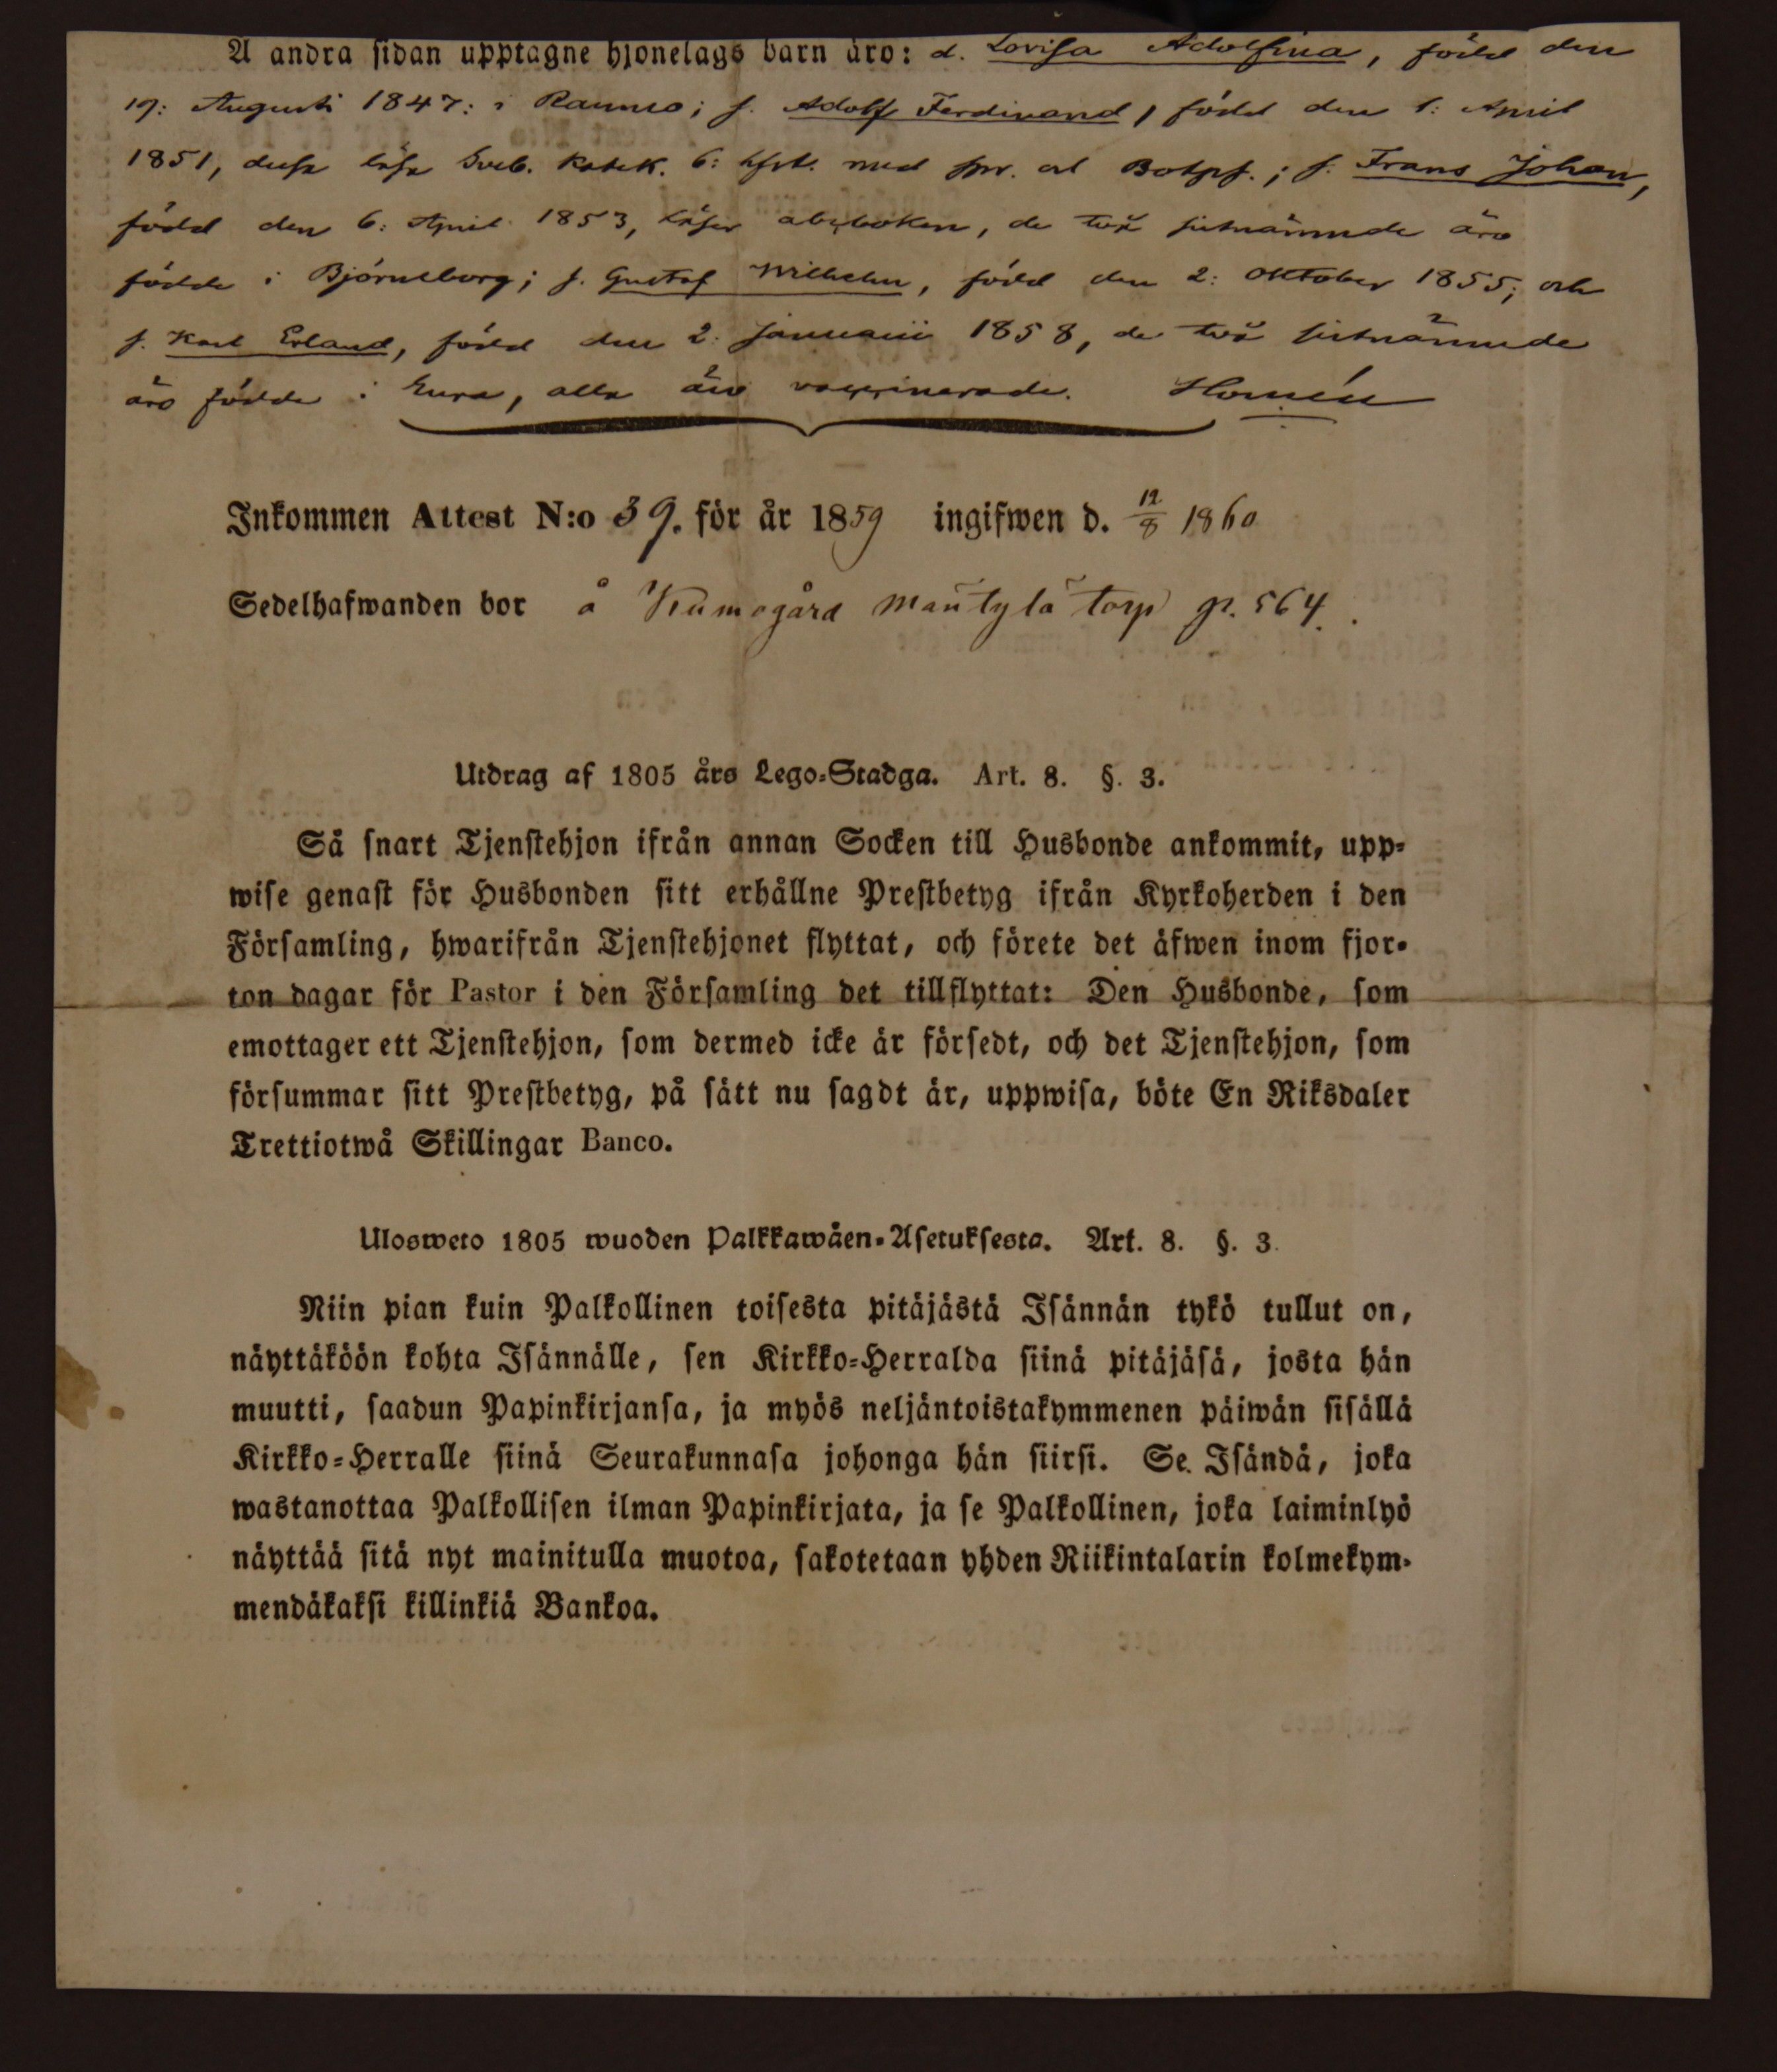 Å andra sidan upptagne hjonelags barn äro: d. Lovisa Adolfina, född den
19: Augusti 1847: i Raumo; s. Adolf Ferdinand, född den 1: April
1851, dessa läsa Sveb. Katek. 6: hfst. med spr. och Botps.; s. Frans Johan,
född den 6: April 1853, läser abcboken, de två sistnämnde äro
födde i Björneborg; s. Gustaf Wilhelm, född den 2: Oktober 1855; och
s. Karl Erland, född den 2: Januarii 1858, de två sistnämnde
äro födde i Eura, alla äro vaccinerade. Homén
Inkommen Attest N:o 39. för år 1859 ingifwen d. 12/8 1860
Sedelhafwanden bor å Kumogård Mäntylä torp p. 564.
Utdrag af 1805 års Lego-Stadga. Art. 8. §. 3.
Så snart Tjenstehjon ifrån annan Socken till Husbonde ankommit, upp-
wise genast för Husbonden sitt erhållne Prestbetyg ifrån Kyrkoherden i den
Församling, hwarifrån Tjenstehjonet flyttat, och förete det äfwen inom fjor-
ton dagar för Pastor i den Församling det tillflyttat: Den Husbonde, som
emottager ett Tjenstehjon, som dermed icke är försedt, och det Tjenstehjon, som
försummar sitt Prestbetyg, på sätt nu sagdt är, uppwisa, böte En Riksdaler
Trettiotwå Skillingar Banco.
Ulosweto 1805 wuoden Palkkawäen-Asetuksesta. Art. 8. §. 3.
Niin pian kuin Palkollinen toisesta pitäjästä Isännän tykö tullut on,
näyttäköön kohta Isännälle, sen Kirkko-Herralda siinä pitäjäsä, josta hän
muutti, saadun Papinkirjansa, ja myös neljäntoistakymmenen päiwän sisällä
Kirkko-Herralle siinä Seurakunnasa johonga hän siirsi. Se Isändä, joka
wastanottaa Palkollisen ilman Papinkirjata, ja se Palkollinen, joka laiminlyö
näyttää sitä nyt mainitulla muotoa, sakotetaan yhden Riikintalarin kolmekym-
mendäkaksi killinkiä Bankoa.